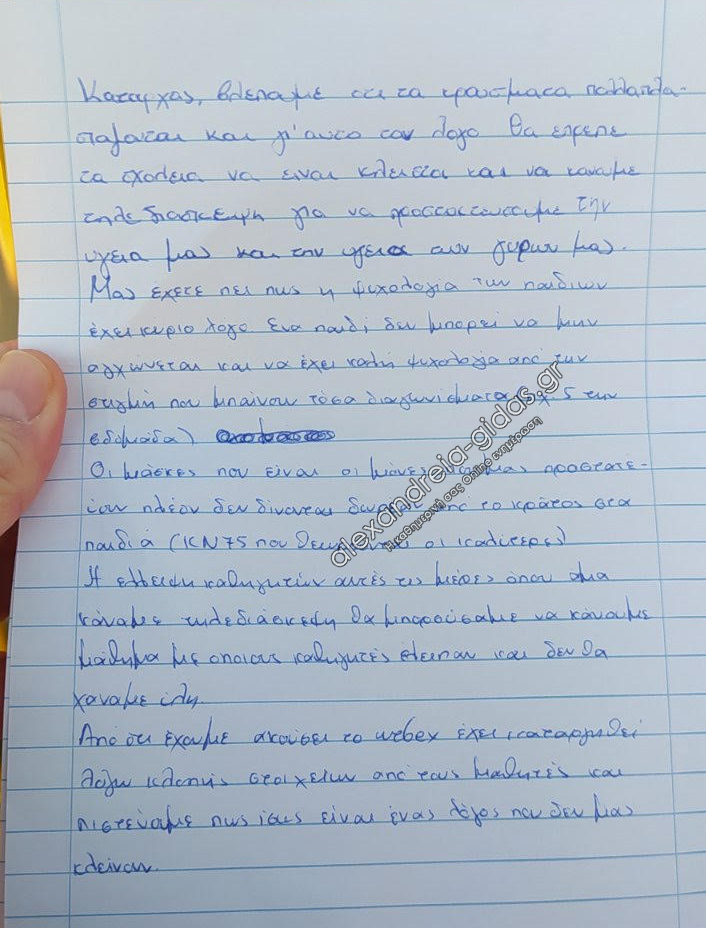 Καταρχας, βλεπαμε οτι τα κρουσματα πολλαπλα-
σιαζονται και γι'αυτο τον λογο θα επρεπε
τα σχολεια να ειναι κλειστα και να κανουμε
τηλεδιασκεψη για να προστατευσουμε την
υγεια μας και την υγεια των γυρων μας.
Μας εχετε πει πως η ψυχολογια των παιδιων
έχει κυριο λογο Ένα παιδί δεν μπορεί να μην
αγχώνεται και να έχει καλή ψυχολογία από την
στιγμή που μπαίνουν τόσα διαγωνίσματα 5 την
εδομάδα)
Οι μάσκες που είναι οι μόνες μας προστατέ-
δεν δίνονται το κράτος στα
παιδιά (KN75 που οι καλύτερες)
Η ελλειψη καθηγητών αυτές τις μέρες όπου αμα
κάναμε τηλεδιάσκεψη θα μπορούσαμε να κάνουμε
μάθημα με οποιους καθηγητές έλειπαν και δεν θα
χαναμε ύλη.
Από ότι έχουμε ακούσει το webex έχει καταργηθεί
λόγω κλοπής στοιχείων από τους μαθητές και
πιστεύουμε πως ίσως είναι ένας λόγος που δεν μας
κλείνουν.
alexandreia-gidas.gr
Η καθημερινή σας Online ενημέρωση